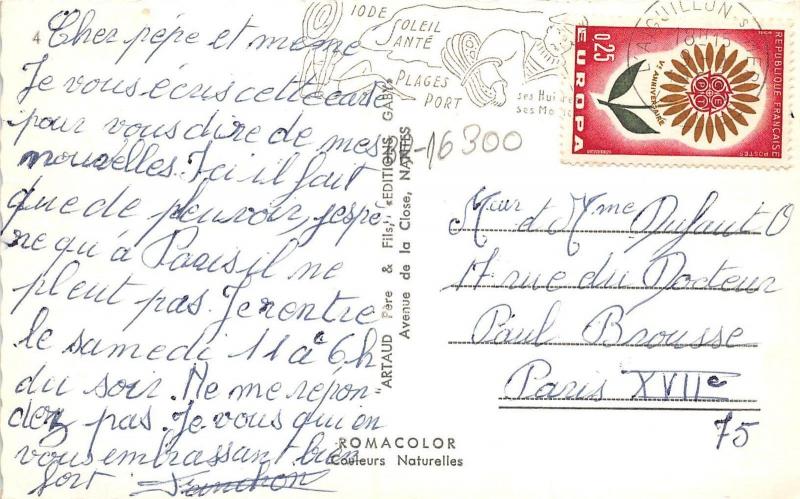 4
Cher pépé et mémé
Je vous écris cette carte
pour vous dire de mes
nouvelles. Ici il fait
que de pleuvoir, j'espè-
re qu'à Paris il ne
pleut pas. Je rentre
le samedi 11 à 6h
du soir. Ne me repon-
dez pas. Je vous qui on
vous embrassant bien
fort. Franchon
IODE
SOLEIL
SANTÉ
PLAGES
PORT
ses Hui
ses Mo
16300
"ARTAUD Père & Fils," «EDITIONS GABY»
Avenue de la Close, NANTES
L'AIGUILLON S
RÉPUBLIQUE FRANÇAISE
POSTES
0,25
EUROPA
CEPT
VE ANNIVERSAIRE
Meur et Mme Dufaut O
17 rue du Docteur
Paul Brousse
Paris XVIIe
75
ROMACOLOR
Couleurs Naturelles